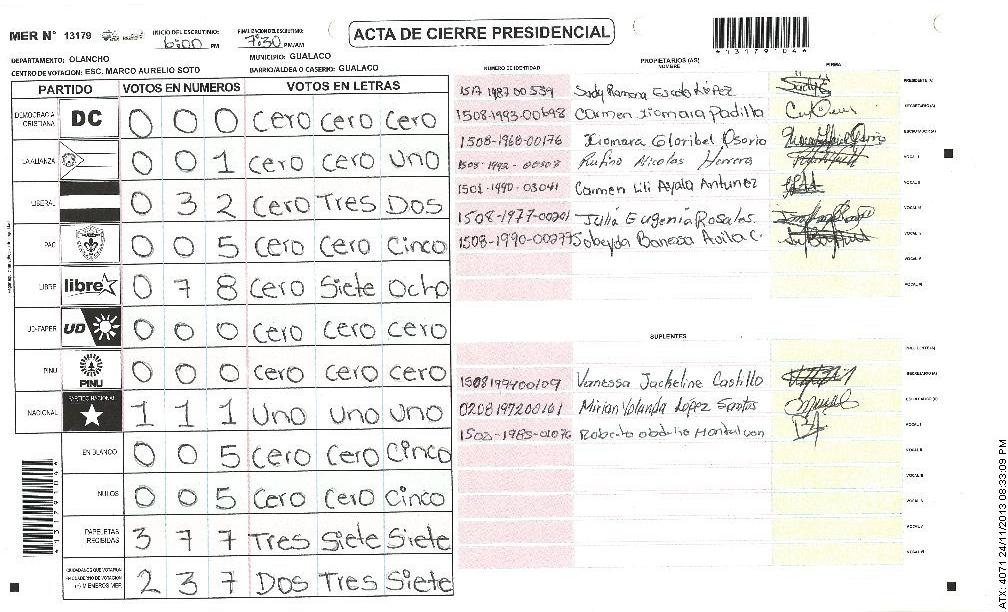 MER N° 13179
INICIO DEL ESCRUTINIO: 6:00 PM
FINALIZACION DEL ESCRUTINIO: 7:30 PM/AM
ACTA DE CIERRE PRESIDENCIAL
*13179104*
DEPARTAMENTO: OLANCHO
MUNICIPIO: GUALACO
CENTRO DE VOTACION: ESC. MARCO AURELIO SOTO
BARRIO/ALDEA O CASERIO: GUALACO
PARTIDO VOTOS EN NUMEROS VOTOS EN LETRAS
DEMOCRACIA CRISTIANA DC 0 0 0 Cero Cero Cero
LA ALIANZA 0 0 1 Cero Cero Uno
LIBERAL 0 3 2 Cero Tres Dos
PAC 0 0 5 Cero Cero Cinco
LIBRE libre 0 7 8 Cero Siete Ocho
UD-FAPER UD 0 0 0 Cero Cero Cero
PINU PINU 0 0 0 Cero Cero Cero
NACIONAL PARTIDO NACIONAL 1 1 1 Uno Uno Uno
EN BLANCO 0 0 5 Cero Cero Cinco
NULOS 0 0 5 Cero Cero Cinco
PAPELETAS RECIBIDAS 3 7 7 Tres Siete Siete
CIUDADANOS QUE VOTARON EN CUADERNO DE VOTACION (+) MIEMBROS MER 2 3 7 Dos Tres Siete
PROPIETARIOS (AS)
NUMERO DE IDENTIDAD NOMBRE FIRMA
1517 1987 00539 Sady Ramona Escoto López PRESIDENTE (A)
1508-1993-00698 Carmen Xiomara Padilla SECRETARIO (A)
1508-1968-00176 Xiomara Gloribel Osorio ESCRUTADOR (A)
1508-1992-00508 Rufino Nicolas Herrera VOCAL I
1501-1990-03041 Carmen Lili Ayala Antunez VOCAL II
1508-1977-00201 Julia Eugenia Rosales
1508-1990-00277 Sobeyda Banessa Avila C.
SUPLENTES
PRESIDENTE (A)
1508199400109 Vanessa Jackeline Castillo SECRETARIO (A)
0208197200161 Mirian Yolanda López Santos ESCRUTADOR (A)
1503-1985-01076 Roberto Montalvan VOCAL I
VOCAL II
ATX: 4071 24/11/2013 08:33:09 PM